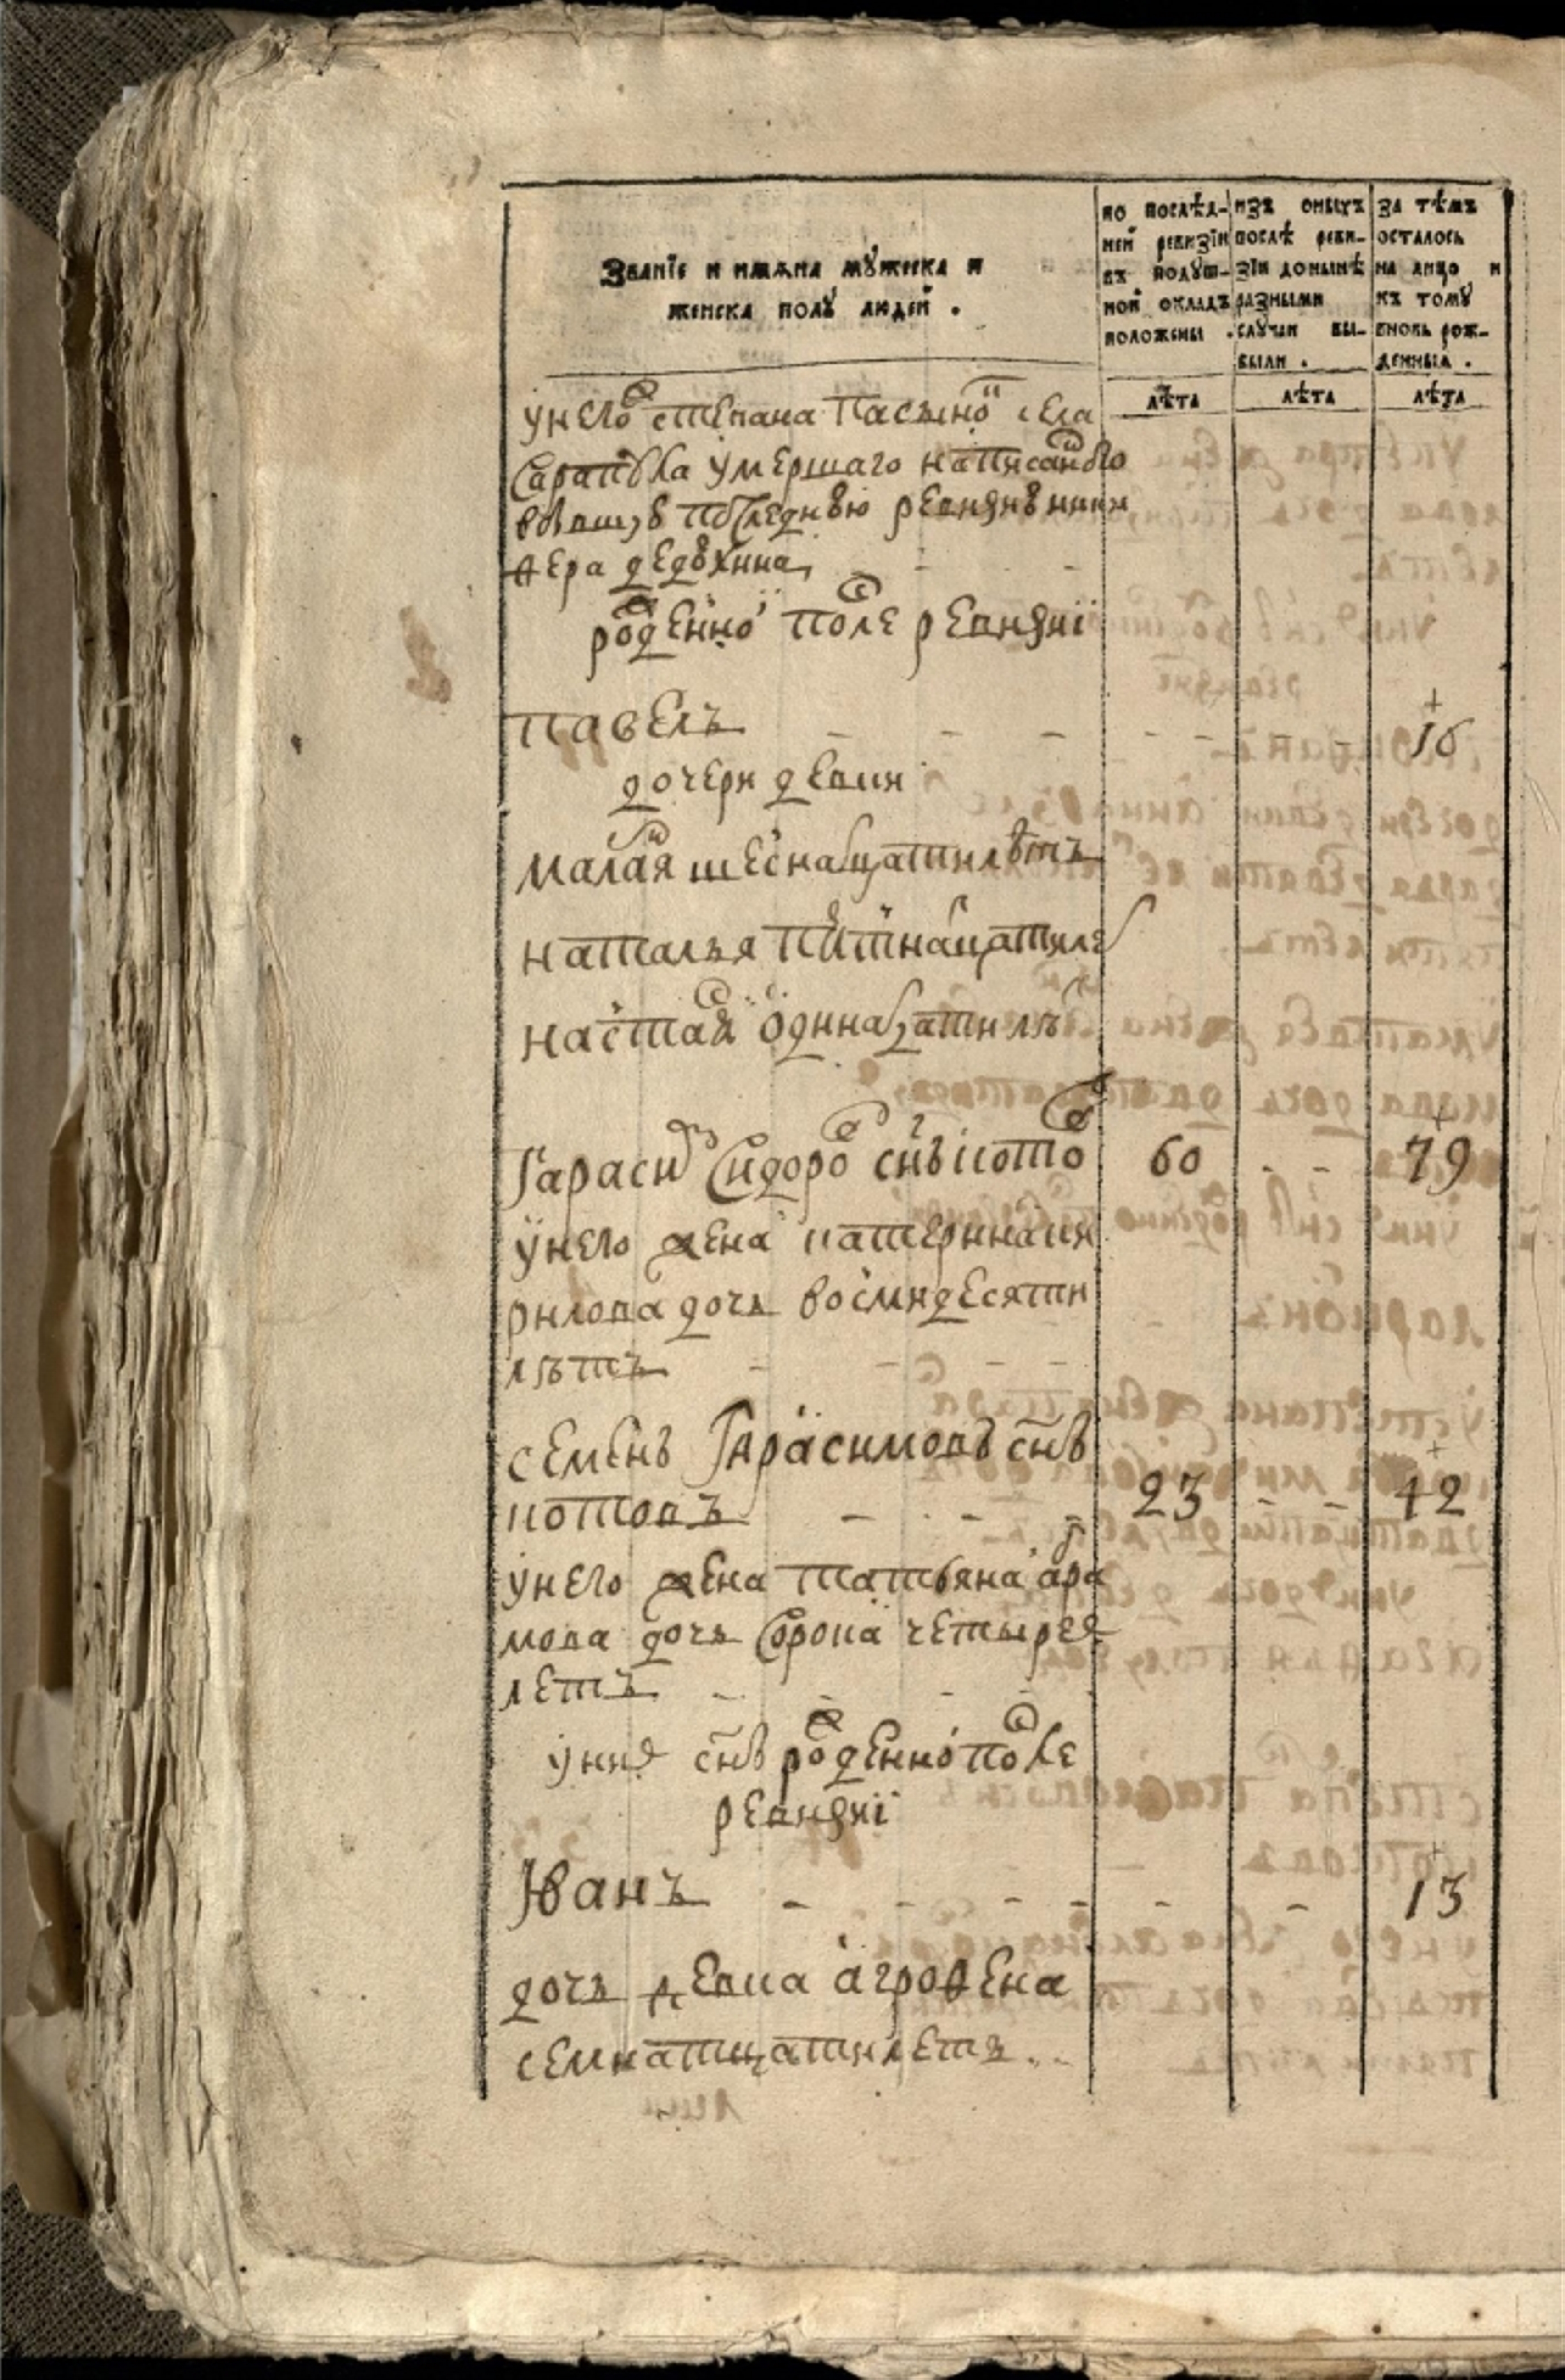 Званїе и имѧна мꙋжеска и
женска полꙋ людей .
по послѣд-
ней ревизїи
въ подꙋш-
ной окладъ
положены .
изъ оныхъ
послѣ реви-
зїи донынѣ
разными
слꙋчаи вы-
были .
за тѣмъ
осталось
на лицо и
къ томꙋ
вновь рож-
денныя .
лѣта
лѣта
лѣта
унего степана пасыно села
Сарапꙋла умершаго написанꙋго
последнюю
родено после ревизиї
павелъ - - - - - - 16
дочери девки
малая шеснатцатилѣтъ
наталья летнатцатиле
настая одинатцатилѣ
Гарасим Сидоро снъ котов 60 - - 79
унего жена катеринаки
рилова дочь восмидесяти
лѣтъ - - - -
семенъ Гарасимовъ снъ
котовъ - - - 23 - - 42
унего жена татьяна абра
мова дочь Сорока четыреъ
летъ - - - -
уних снъ рожденно после
ревизиї
Иванъ - - - - - - 13
дочь девка агрофена
семнатцатилетъ